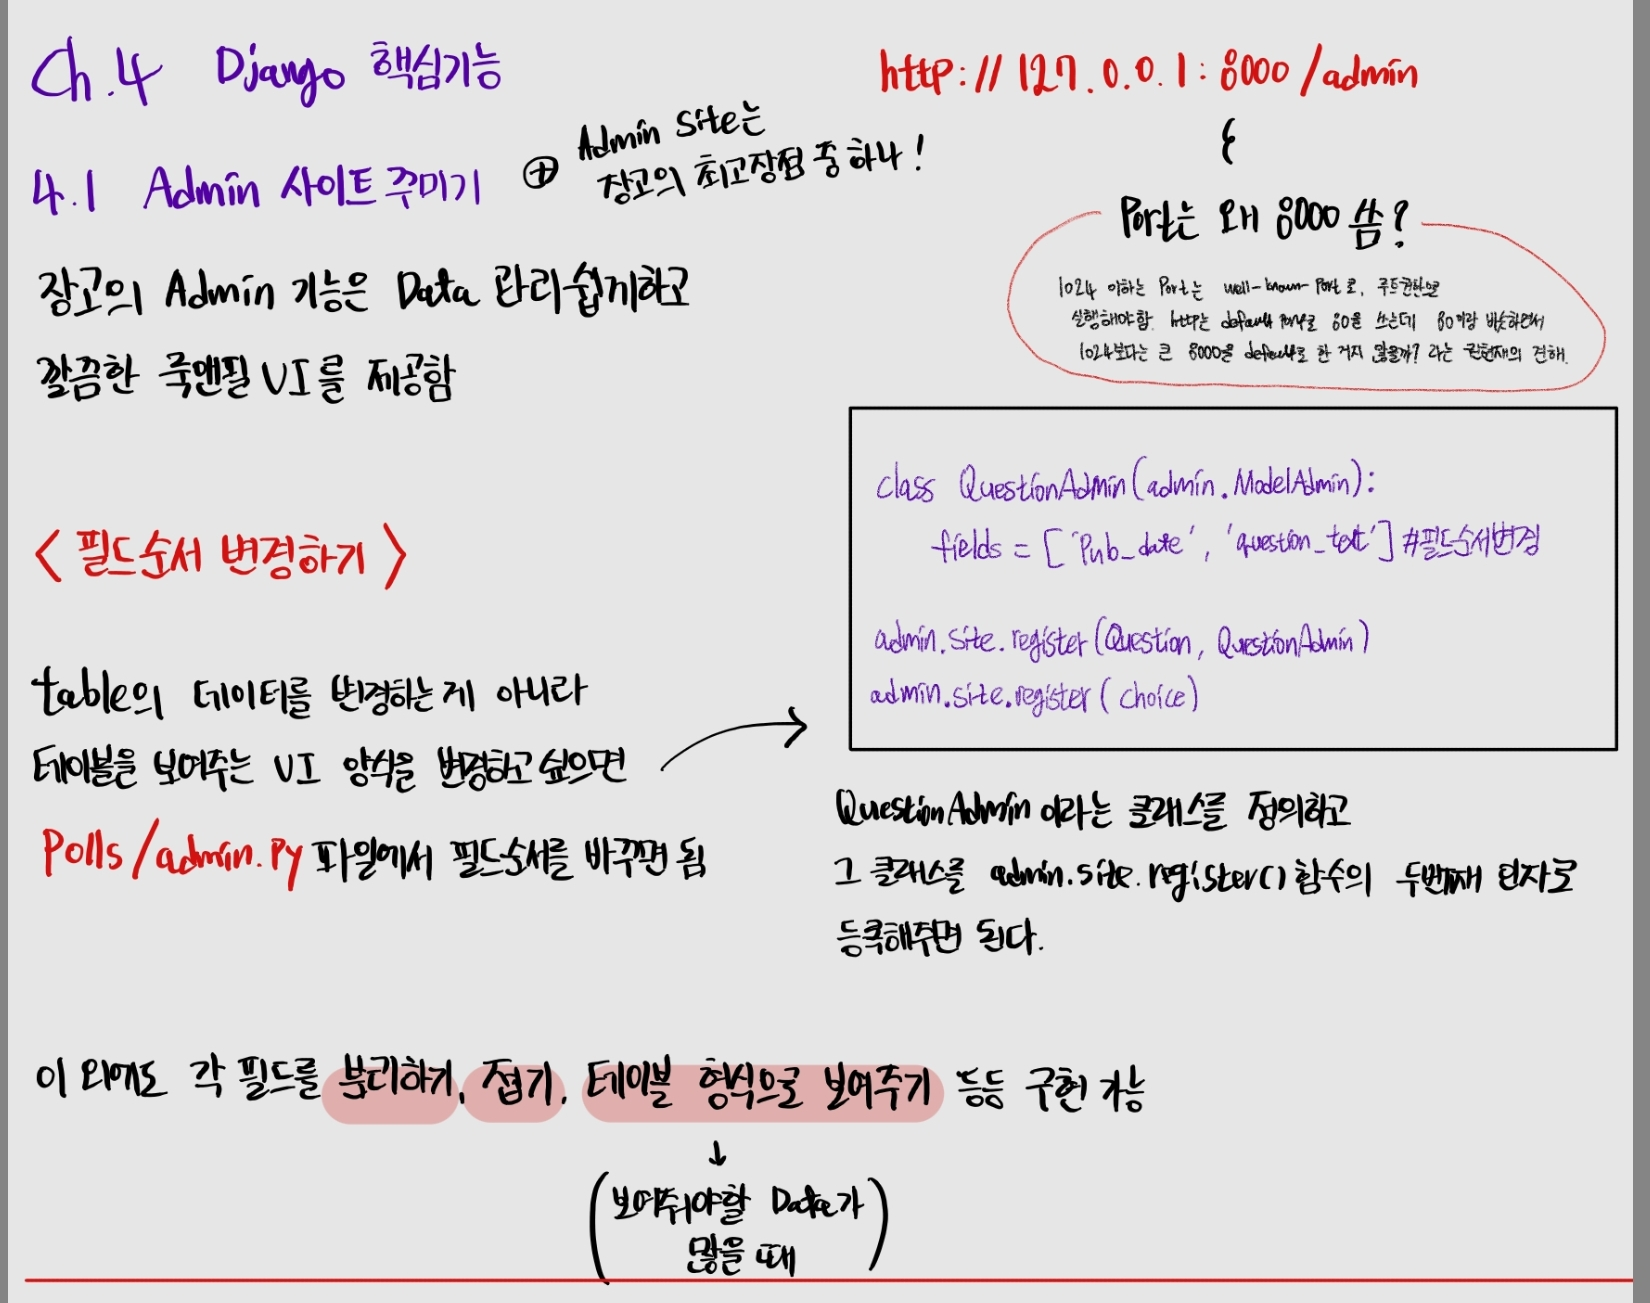 Ch.4 Django 핵심기능
4.1 Admin 사이트 꾸미기
⊕ Admin Site는
장고의 최고장점 중 하나!
장고의 Admin 기능은 Data 관리쉽게하고
깔끔한 룩앤필 UI를 제공함
http://127.0.0.1:8000/admin
Port는 왜 8000 씀?
1024 이하는 Port는 well-known-Port로, 루트권한으로
실행해야함. http는 default port로 80을 쓰는데 80이랑 비슷하면서
1024보다는 큰 8000을 default로 한 거지 않을까? 라는 권현재의 견해.
<필드순서 변경하기>
table의 데이터를 변경하는게 아니라
테이블을 보여주는 UI 양식을 변경하고 싶으면
Polls/admin.py 파일에서 필드순서를 바꾸면 됨
class QuestionAdmin(admin.ModelAdmin):
fields = ['Pub_date', 'question_text'] #필드순서변경
admin.site.register(Question, QuestionAdmin)
admin.site.register(choice)
QuestionAdmin이라는 클래스를 정의하고
그 클래스를 admin.site.register() 함수의 두번째 인자로
등록해주면 된다.
이 외에도 각 필드를 분리하기, 접기, 테이블 형식으로 보여주기 등등 구현 가능
↓
(보여줘야할 Data가
많을 때)